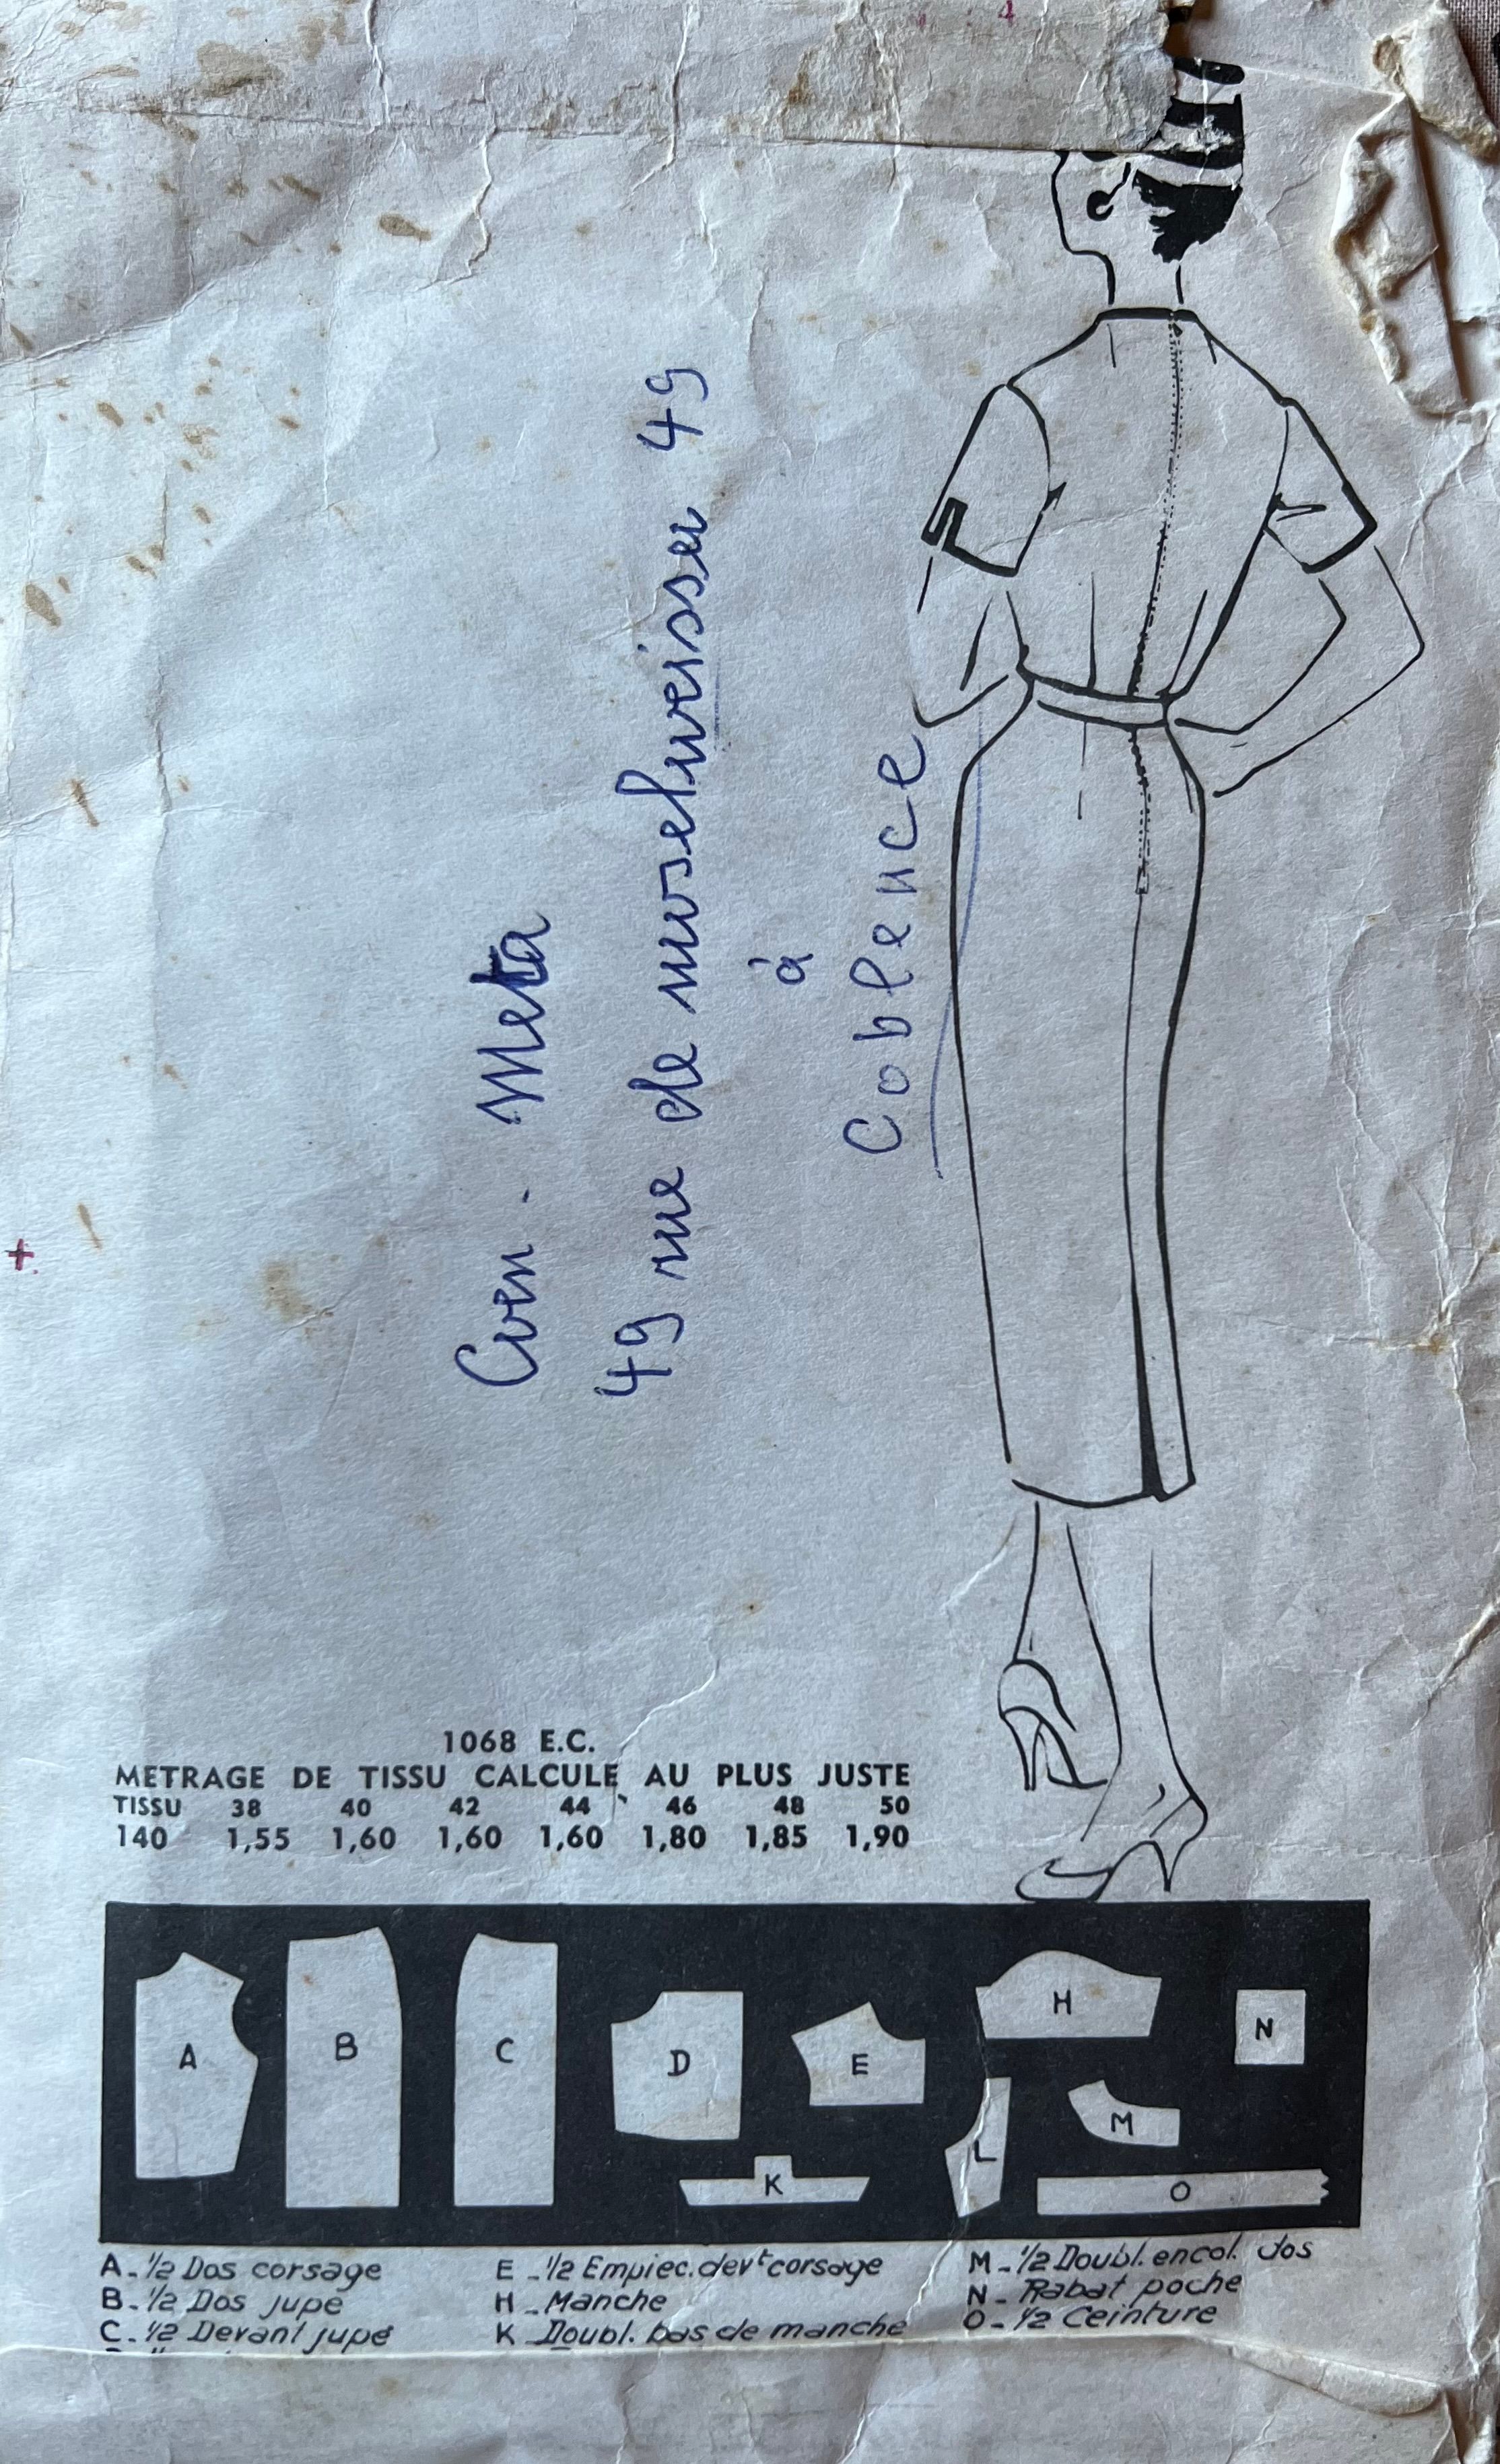 4
Coen - Meta
49 rue de moselweisser 49
à
Coblence
+
1068 E.C.
METRAGE DE TISSU CALCULE AU PLUS JUSTE
TISSU 38 40 42 44 46 48 50
140 1,55 1,60 1,60 1,60 1,80 1,85 1,90
A B C D E H N
K L M O
A - ½ Dos corsage
B - ½ Dos jupe
C - ½ Devant jupe
E - ½ Empiec. devt corsage
H - Manche
K - Doubl. bas de manche
M - ½ Doubl. encol. dos
N - Rabat poche
O - ½ Ceinture